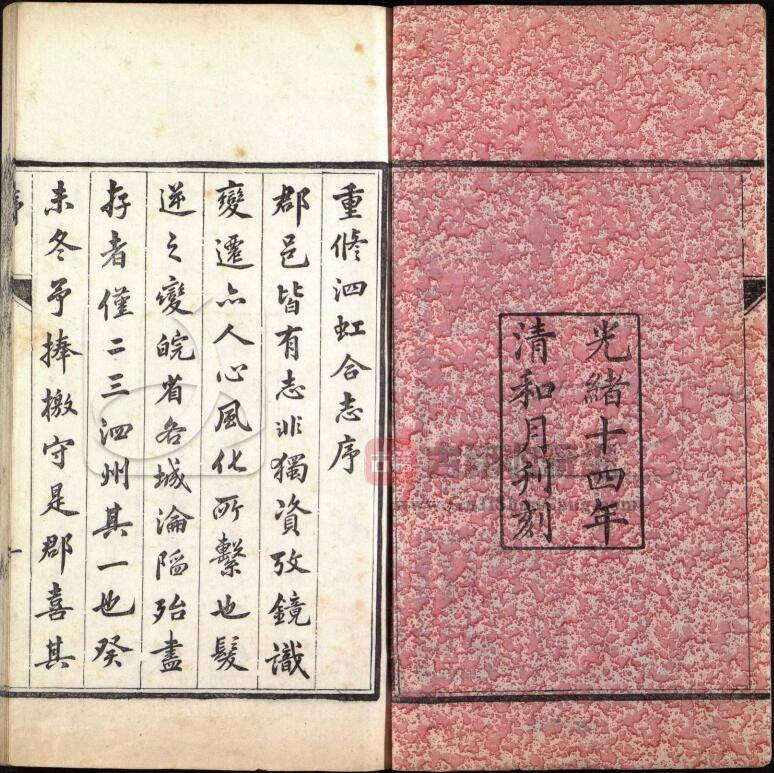 光緒十四年
清和月刊刻
重修泗虹合志序
郡邑皆有志非獨資攷鏡識
變遷亦人心風化所繫也髮
逆之變皖省各城淪陷殆盡
存者僅二三泗州其一也癸
未冬予捧檄守是郡喜其
序
一